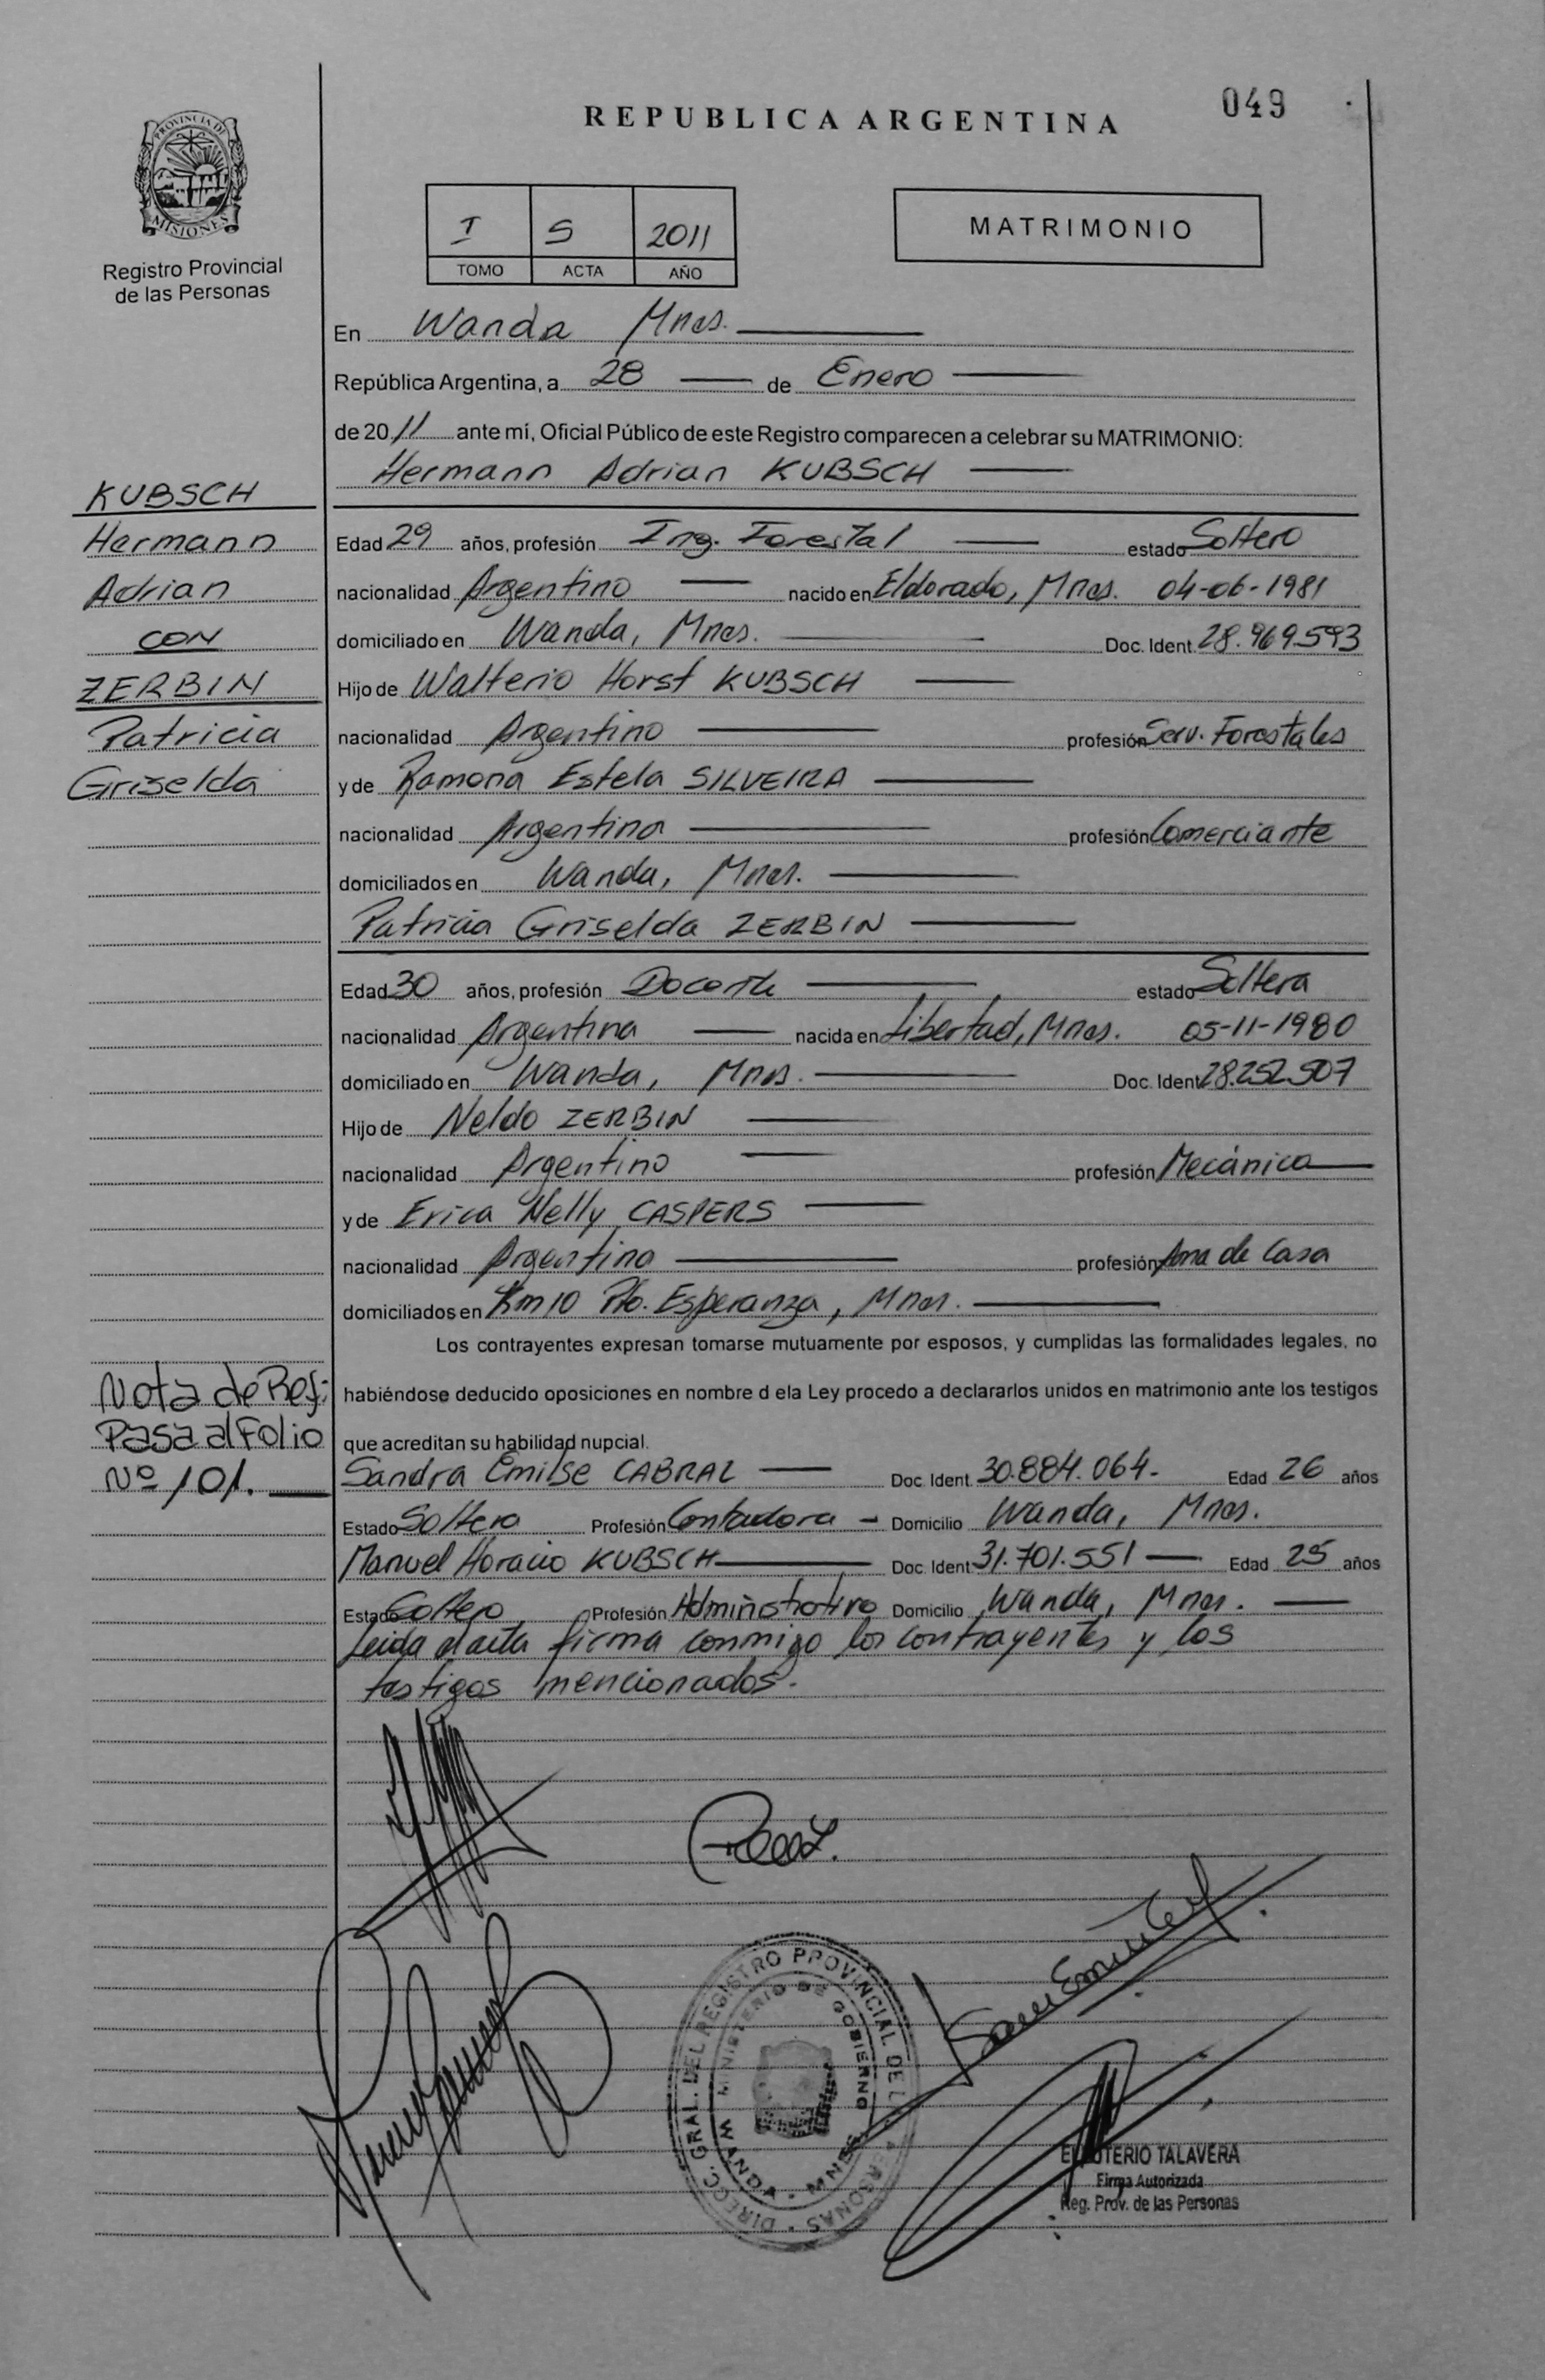 REPUBLICA ARGENTINA
049
PROVINCIA DE
MISIONES
Registro Provincial
de las Personas
I S 2011
TOMO ACTA AÑO
MATRIMONIO
En Wanda Mnes.
República Argentina, a 28 de Enero
de 20 11 ante mí, Oficial Público de este Registro comparecen a celebrar su MATRIMONIO:
Hermann Adrian KUBSCH
KUBSCH
Hermann
Adrian
CON
ZERBIN
Patricia
Griselda
Edad 29 años, profesión Ing. Forestal estado Soltero
nacionalidad Argentino nacido en Eldorado, Mnes. 04-06-1981
domiciliado en Wanda, Mnes. Doc. Ident. 28.969.593
Hijo de Walterio Horst KUBSCH
nacionalidad Argentino profesión Serv. Forestales
y de Ramona Estela SILVEIRA
nacionalidad Argentina profesión Comerciante
domiciliados en Wanda, Mnes.
Patricia Griselda ZERBIN
Edad 30 años, profesión Docente estado Soltera
nacionalidad Argentina nacida en Libertad, Mnes. 05-11-1980
domiciliado en Wanda, Mnes. Doc. Ident 28.252.507
Hijo de Neldo ZERBIN
nacionalidad Argentino profesión Mecánico
y de Erica Nelly CASPERS
nacionalidad Argentina profesión Ama de Casa
domiciliados en Km 10 Pto. Esperanza, Mnes.
Los contrayentes expresan tomarse mutuamente por esposos, y cumplidas las formalidades legales, no
habiéndose deducido oposiciones en nombre d ela Ley procedo a declararlos unidos en matrimonio ante los testigos
que acreditan su habilidad nupcial.
Nota de Ref:
Pasa al Folio
Nº 101.
Sandra Emilse CABRAL Doc. Ident. 30.884.064.- Edad 26 años
Estado Soltera Profesión Contadora - Domicilio Wanda, Mnes.
Manuel Horacio KUBSCH Doc. Ident. 31.701.551 Edad 25 años
Estado Soltero Profesión Administrativo Domicilio Wanda, Mnes.
Leida el acta firma conmigo los contrayentes y los
testigos mencionados.
DIRECC. GRAL. DEL REGISTRO PROVINCIAL DE PERSONAS
MINISTERIO DE GOBIERNO
WANDA - MNES
TALAVERA
Firma Autorizada
Reg. Prov. de las Personas